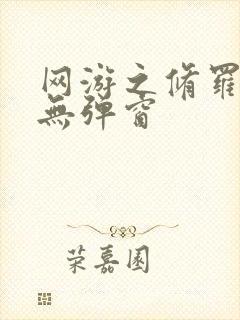 网游之脩羅
無弹窗
荣嘉園